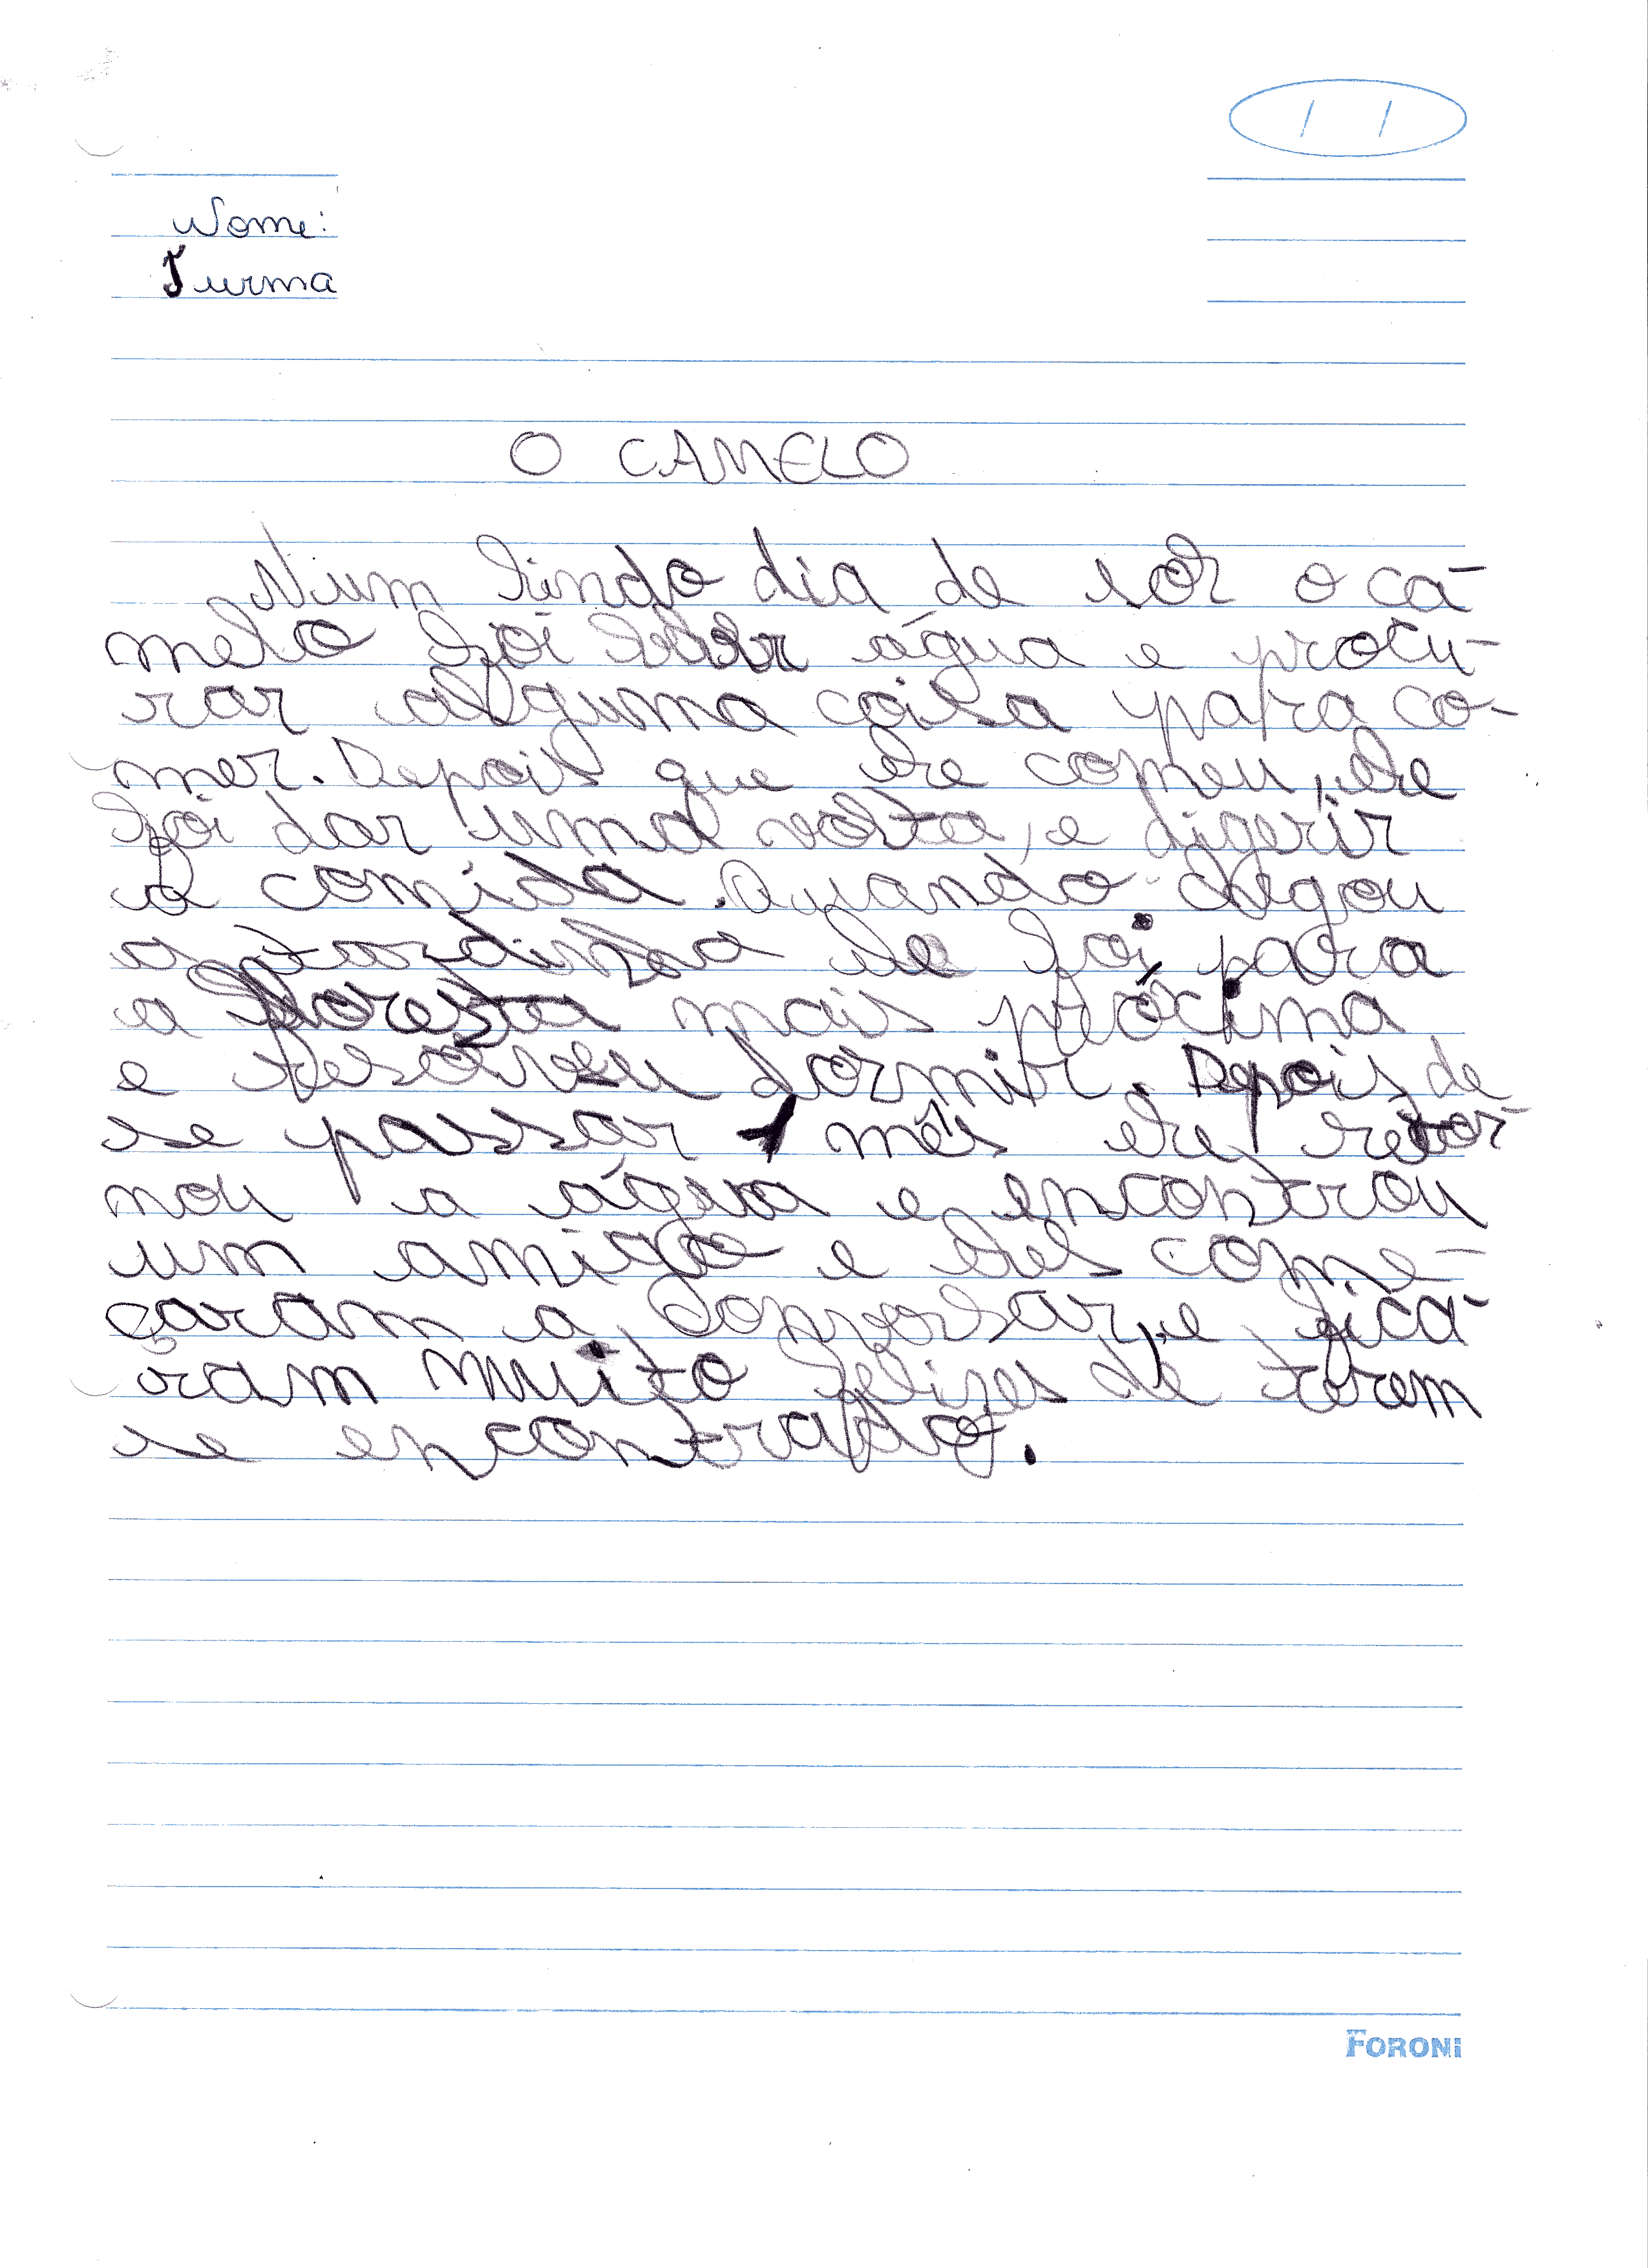 / /
Nome:
Turma
O CAMELO
Num lindo dia de sol o ca-
melo foi beber água e procu-
rar alguma coisa para co-
mer. Depois que ele comeu, ele
foi dar uma volta, e digerir
a comida. Quando chegou
a tardinha ele foi para
a floresta mais próxima
e resolveu dormir. Depois de
se passar 1 mês ele retor-
nou a água e encontrou
um amigo e eles come-
çaram a conversar, e fica-
ram muito felizes de terem
se encontrado.
FORONI